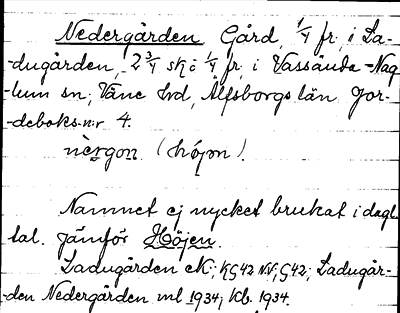 Nedergården Gård 1/4 fr, i La-
-dugården, 2 3/4 sk o 1/4 fr, i Vassända-Nag
-lum sn, Väne hd, Älfsborgs län Jor-
-deboks-nr 4.
(höjən).
Namnet ej mycket brukat i dagl.
tal. Jämför Höjen.
Ladugården eK; KG42 NV; G42; Ladugår-
-den Nedergården ml 1934; kb. 1934.